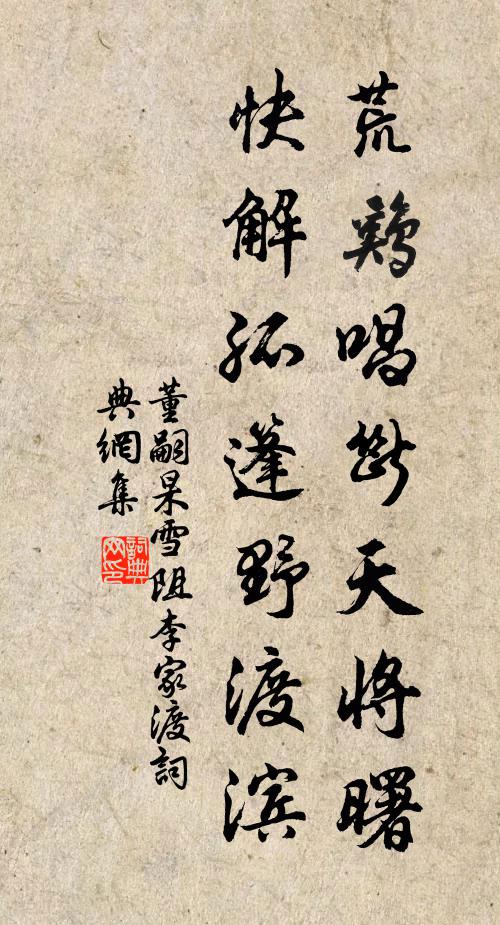 荒鷄唱斷天將曙
快解孤蓬野渡濱
董嗣杲雪阻李家渡詞
典網集
詞典網印